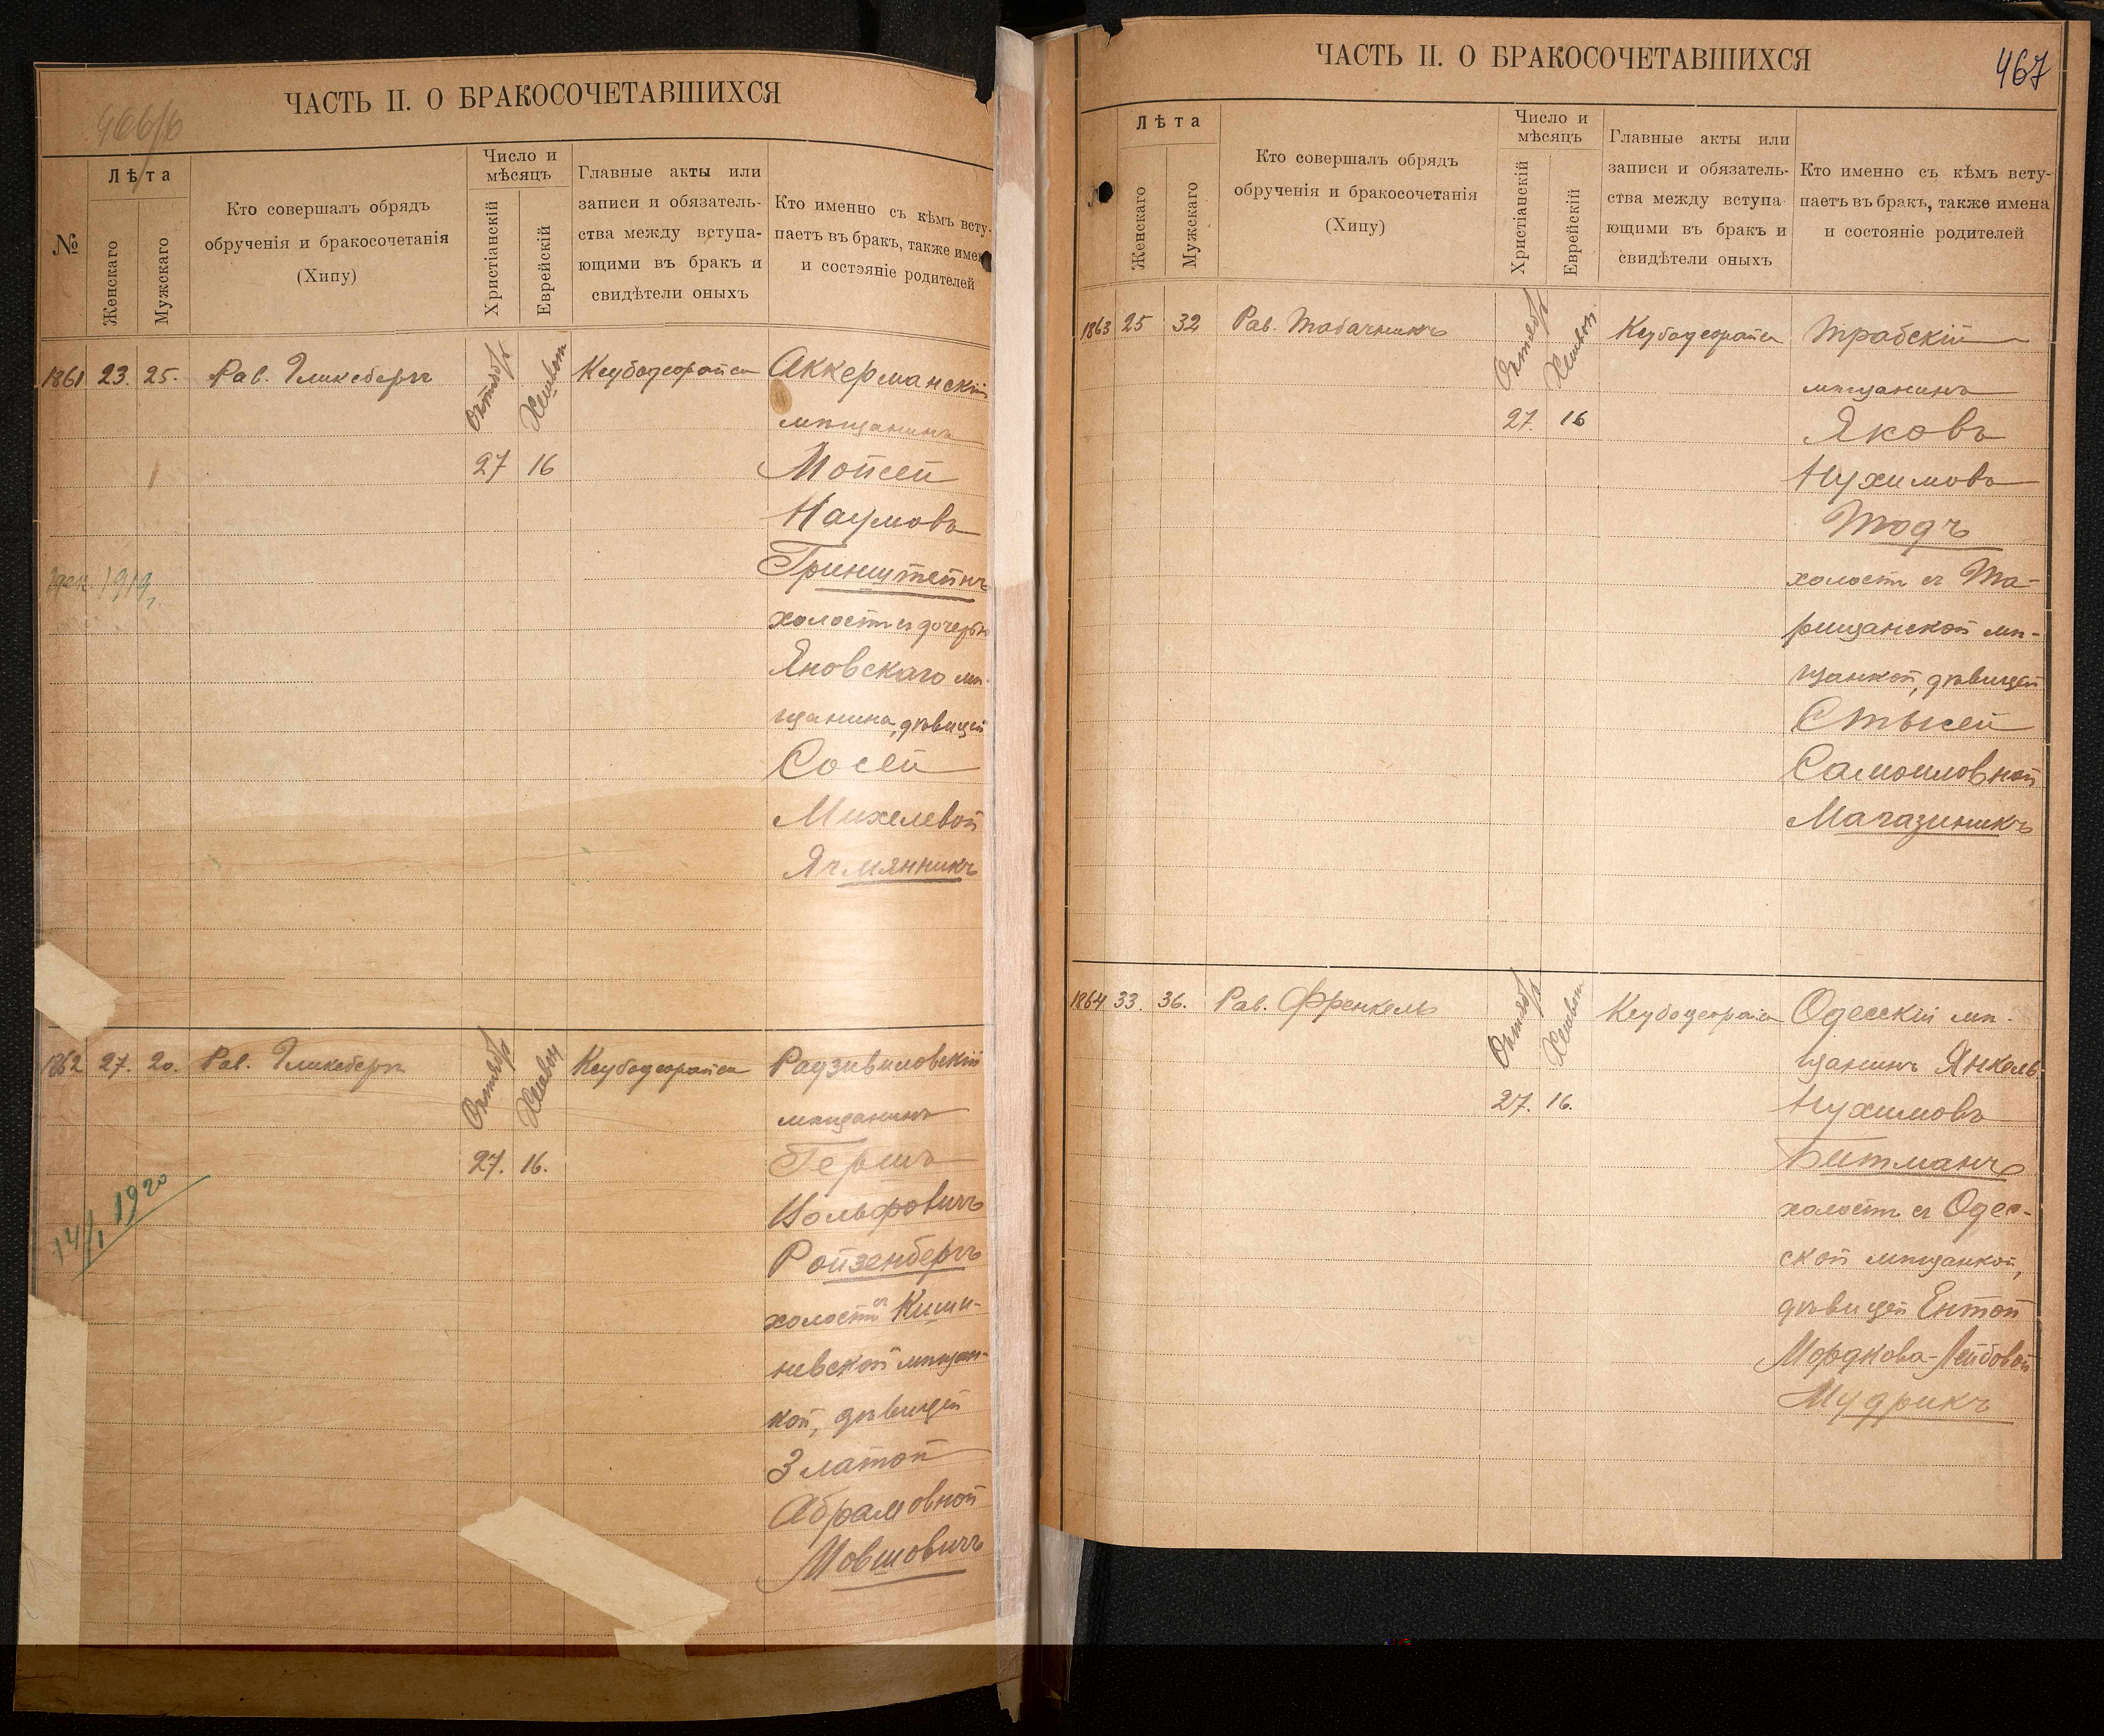 466/б
ЧАСТЬ II. О БРАКОСОЧЕТАВШИХСЯ
№
Лѣта
Женскаго
Мужскаго
Кто совершалъ обрядъ
обрученія и бракосочетанія
(Хипу)
Число и
мѣсяцъ
Христіанскій
Еврейскій
Главные акты или
записи и обязатель-
ства между вступа-
ющими въ бракъ и
свидѣтели оныхъ
Кто именно съ кѣмъ всту-
паетъ въ бракъ, также имен
и состэяніе родителей
1861 23. 25. Рав. Гликсбергъ Октябр Хешвон Ксубадеорайса Аккерманскій
мѣщанинъ
27 16 Мойсей
Наумовъ
Гринштейнъ
1919
холостъ съ дочерью
Яновскаго мѣ-
щанина, дѣвицей
Сосей
Михелевой
Ячмянникъ
1862 27. 20. Рав. Гликсбергъ Октябр Хешвон Ксубадеорайса Радзивиловскій
мѣщанинъ
27. 16. Гершъ
Вольфовичъ
Ройзенбергъ
14/I 1920
холостъ съ Киши-
невской мѣщан-
кой, дѣвицей
Златой
Абрамовной
Мовшовичъ
467
ЧАСТЬ II. О БРАКОСОЧЕТАВШИХСЯ
Лѣта
Женскаго
Мужскаго
Кто совершалъ обрядъ
обрученія и бракосочетанія
(Хипу)
Число и
мѣсяцъ
Христіанскій
Еврейскій
Главные акты или
записи и обязатель-
ства между вступа-
ющими въ бракъ и
свидѣтели оныхъ
Кто именно съ кѣмъ всту-
паетъ въ бракъ, также имена
и состояніе родителей
1863 25 32 Рав. Табачникъ Октябр Хешвон Ксубадеорайса Трабскій
мѣщанинъ
27. 16 Яковъ
Нухимовъ
Тодъ
холостъ съ Та-
рищанской мѣ-
щанкой, дѣвицей
Стысей
Самоиловной
Магазиникъ
1864 33. 36. Рав. Френкель Октябр Хешвон Ксубадеорайса Одесскій мѣ-
щанинъ Янкель
27. 16. Нухимовъ
Битманъ
холостъ съ Одес-
ской мѣщанкой,
дѣвицей Ентой
Мордкова-Лейбовой
Мудрикъ